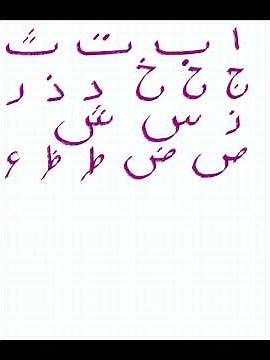 ا ب ت ث
ج ح خ د ذ ر
ز س ش
ص ض ط ظ ع